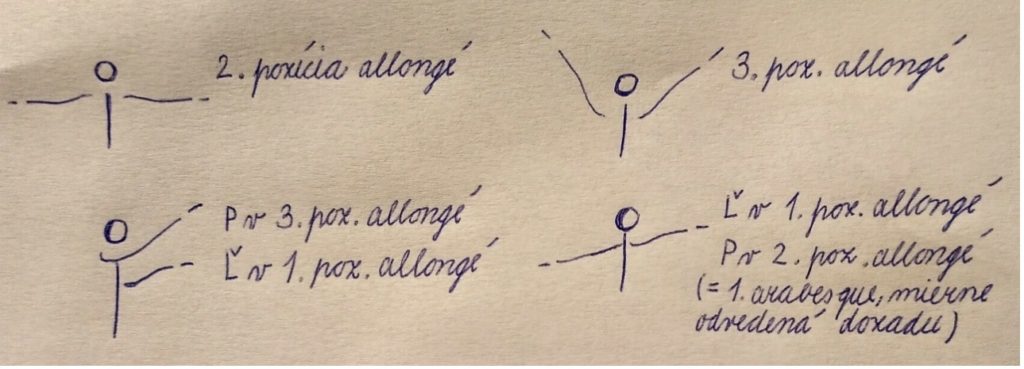 2. pozícia allongé
3. poz. allongé
P v 3. poz. allongé
Ľ v 1. poz. allongé
Ľ v 1. poz. allongé
P v 2. poz. allongé
(= 1. arabesque, mierne
odvedená dozadu)